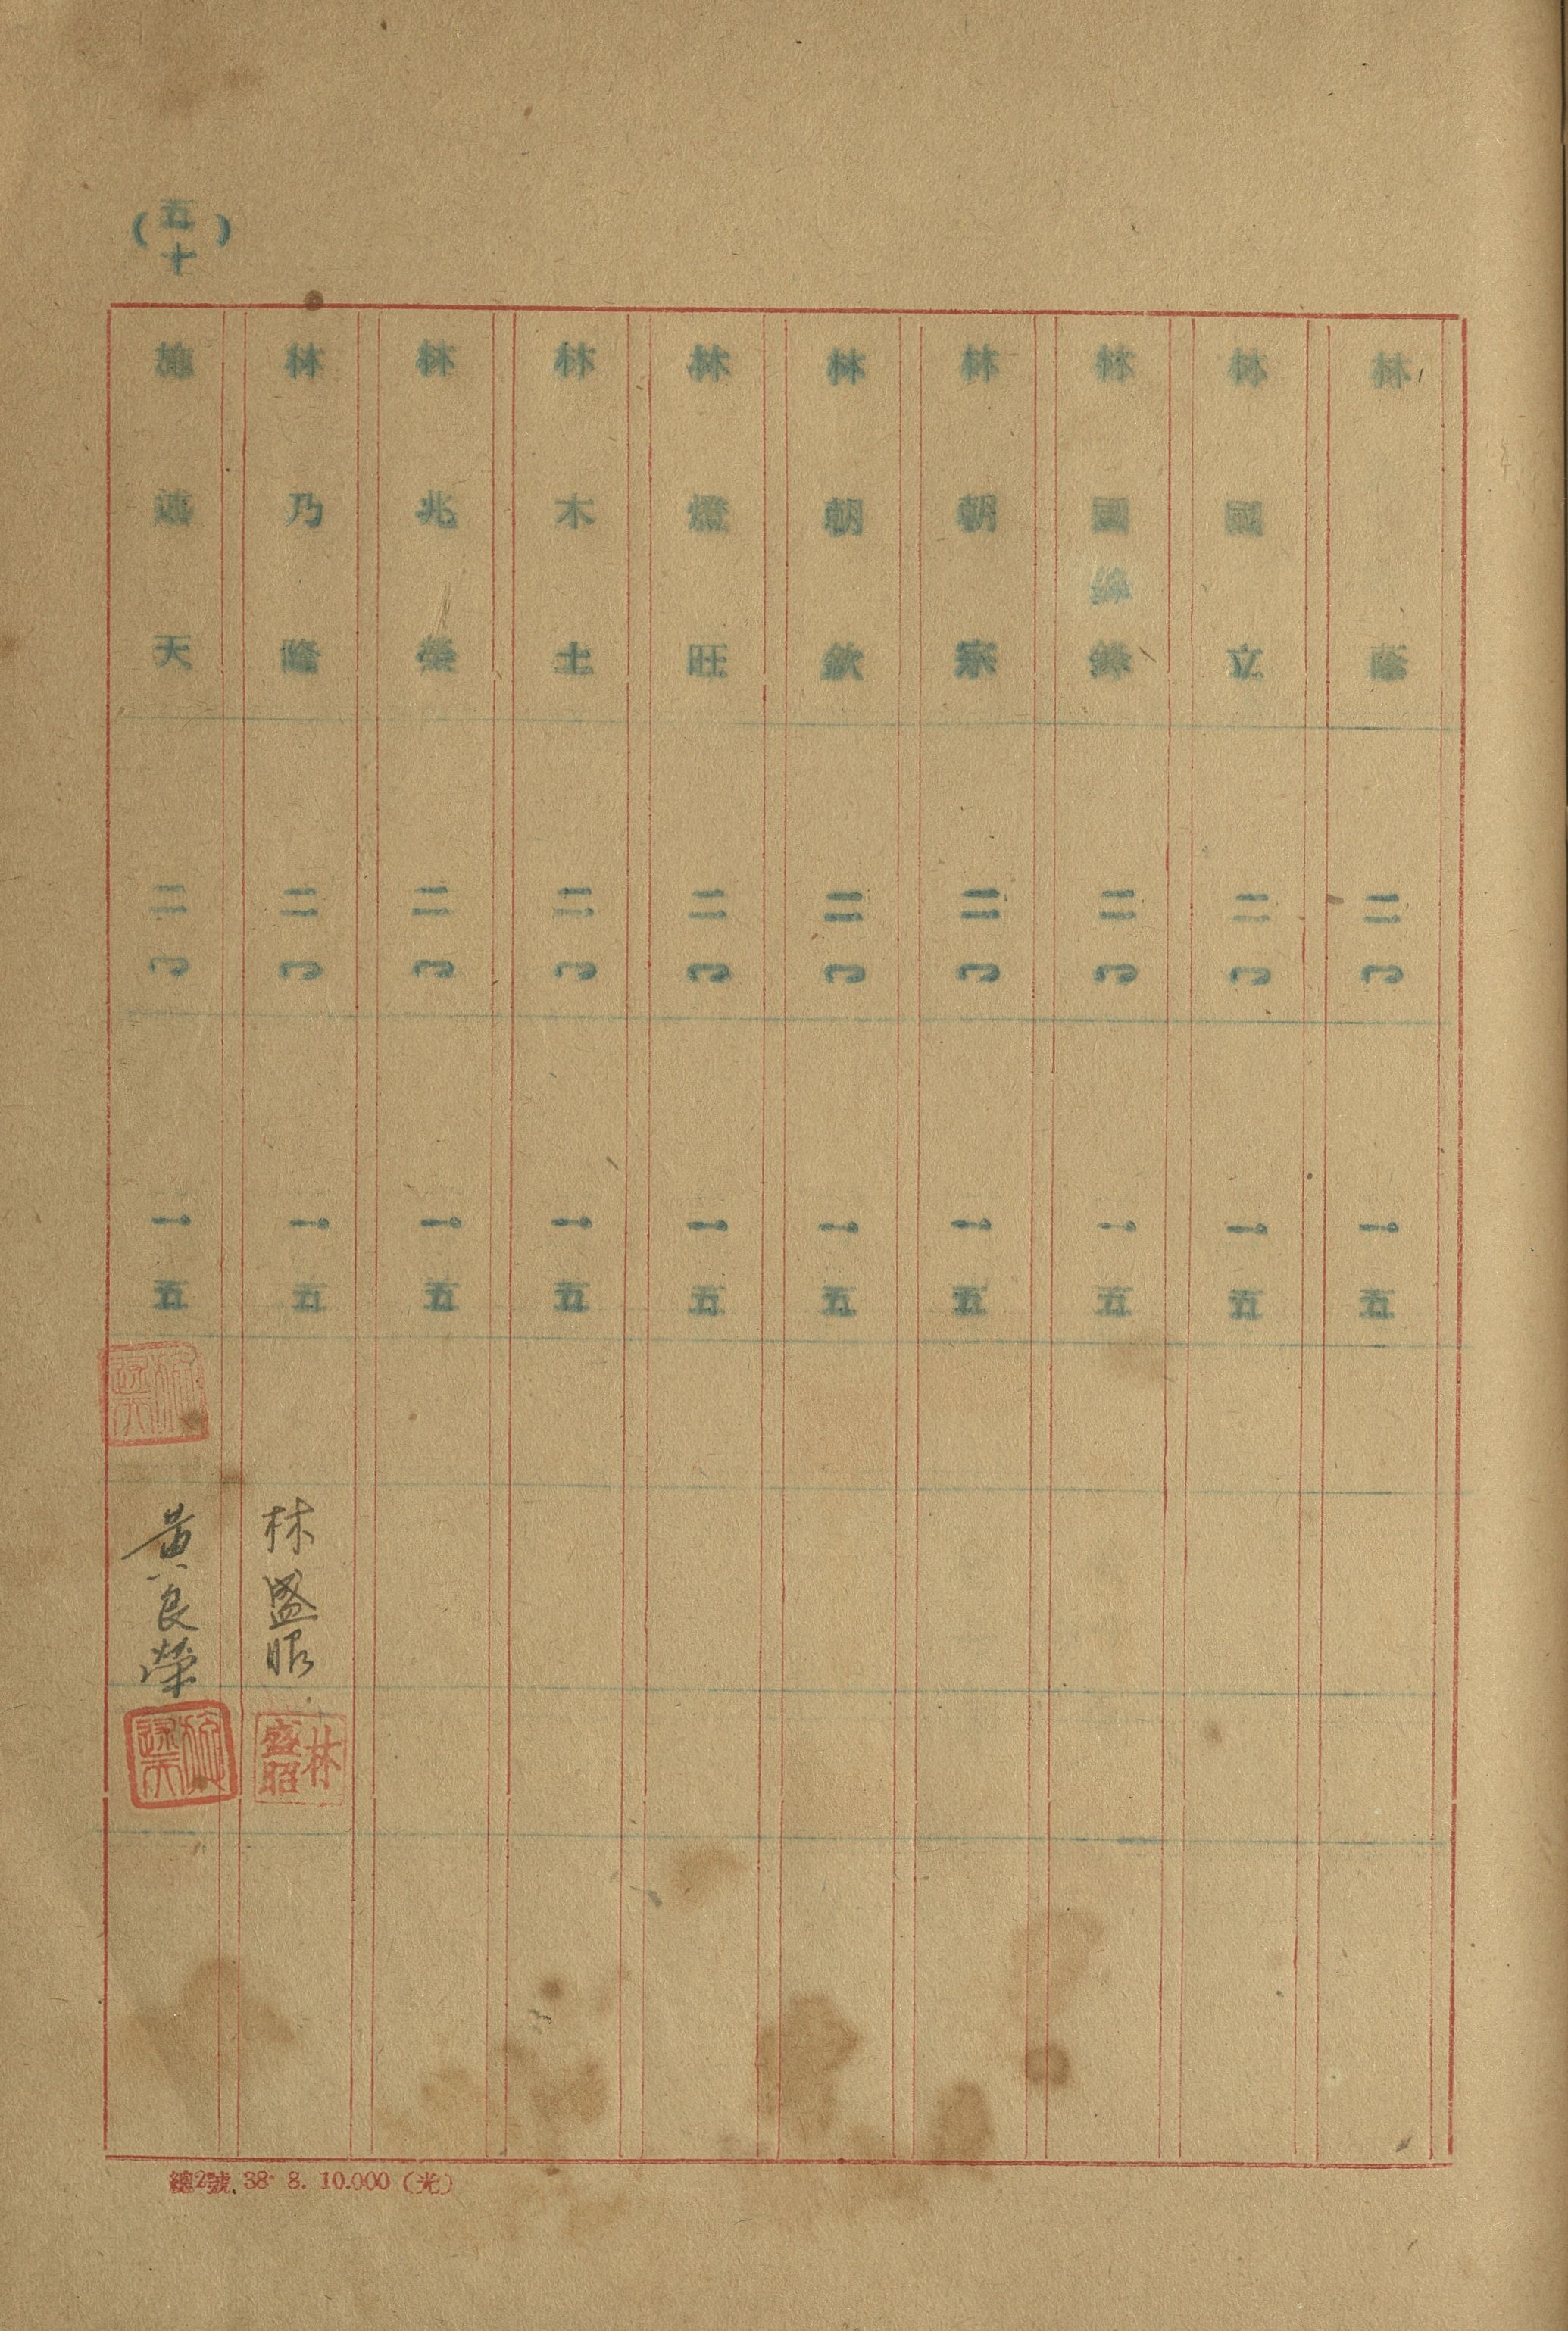 (五十)
林 二 一 五
林國立 二 一 五
林國 二 一 五
林朝宗 二 一 五
林朝欽 二 一 五
林燈旺 二 一 五
林木土 二 一 五
林兆榮 二 一 五
林乃隆 二 一 五 林盛昭 林盛昭
施 天 二 一 五 黃良榮
總2號. 38. 8. 10.000 (光)